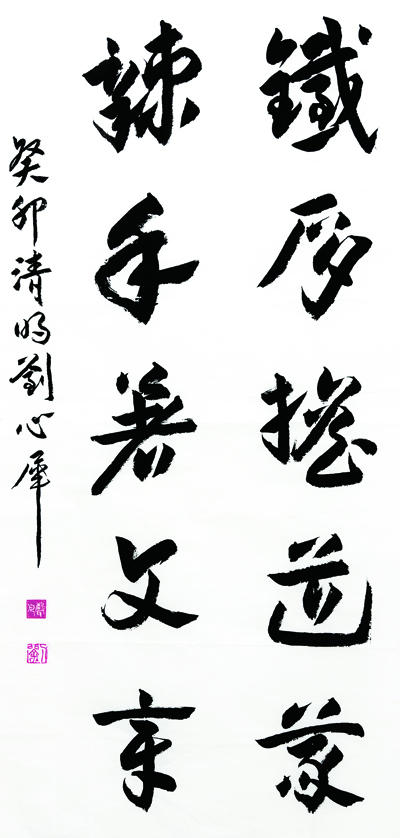 鐵肩擔道義
辣手著文章
癸卯清明劉心犀